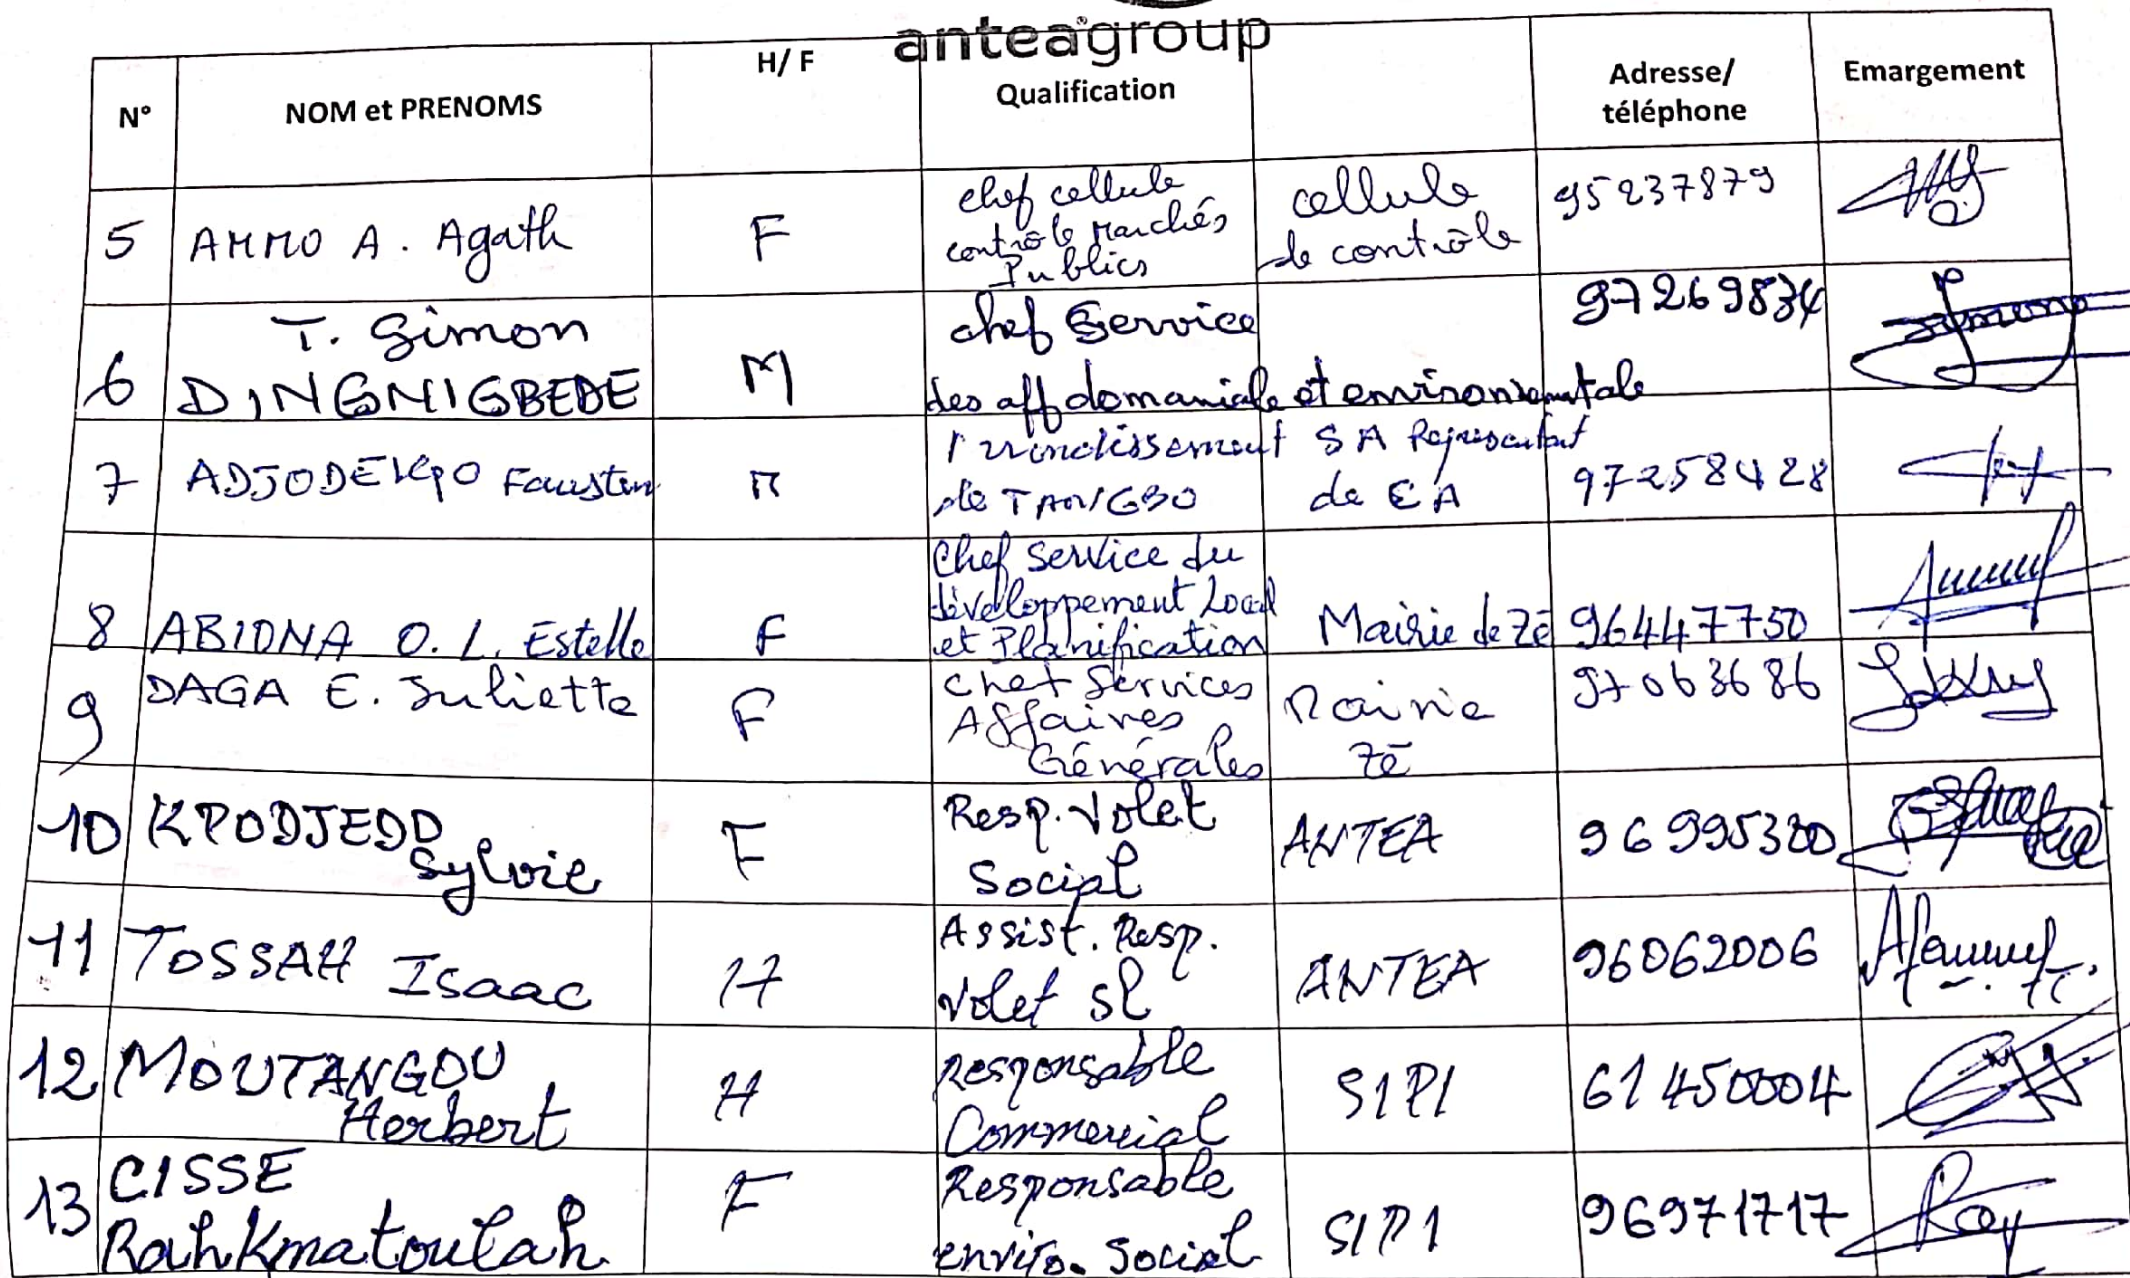 anteagroup
N° NOM et PRENOMS H/ F Qualification Adresse/ téléphone Emargement
5 AMMO A. Agath F chef cellule contrôle Marchés Publics cellule de contrôle 95237879
6 T. Simon DINGNIGBEDE M chef Service des aff domaniale et environnementale 97269834
7 ADJODEKPO Faustin M Arrondissement de TANGBO SA Représentant de CA 97258428
8 ABIONA O. L. Estelle F Chef Service du développement Local et Planification Mairie de Zè 96447750
9 DAGA E. Juliette F Chef Services Affaires Générales Mairie Zè 97063686
10 KPODJEDO Sylvie F Resp. Volet Social ANTEA 96995380
11 TOSSAH Isaac H Assist. Resp. Volet sl ANTEA 96062006
12 MOUTANGOU Herbert H Responsable Commercial SIPI 61450004
13 CISSE Rahkmatoulah F Responsable enviro. Social SIPI 96971717